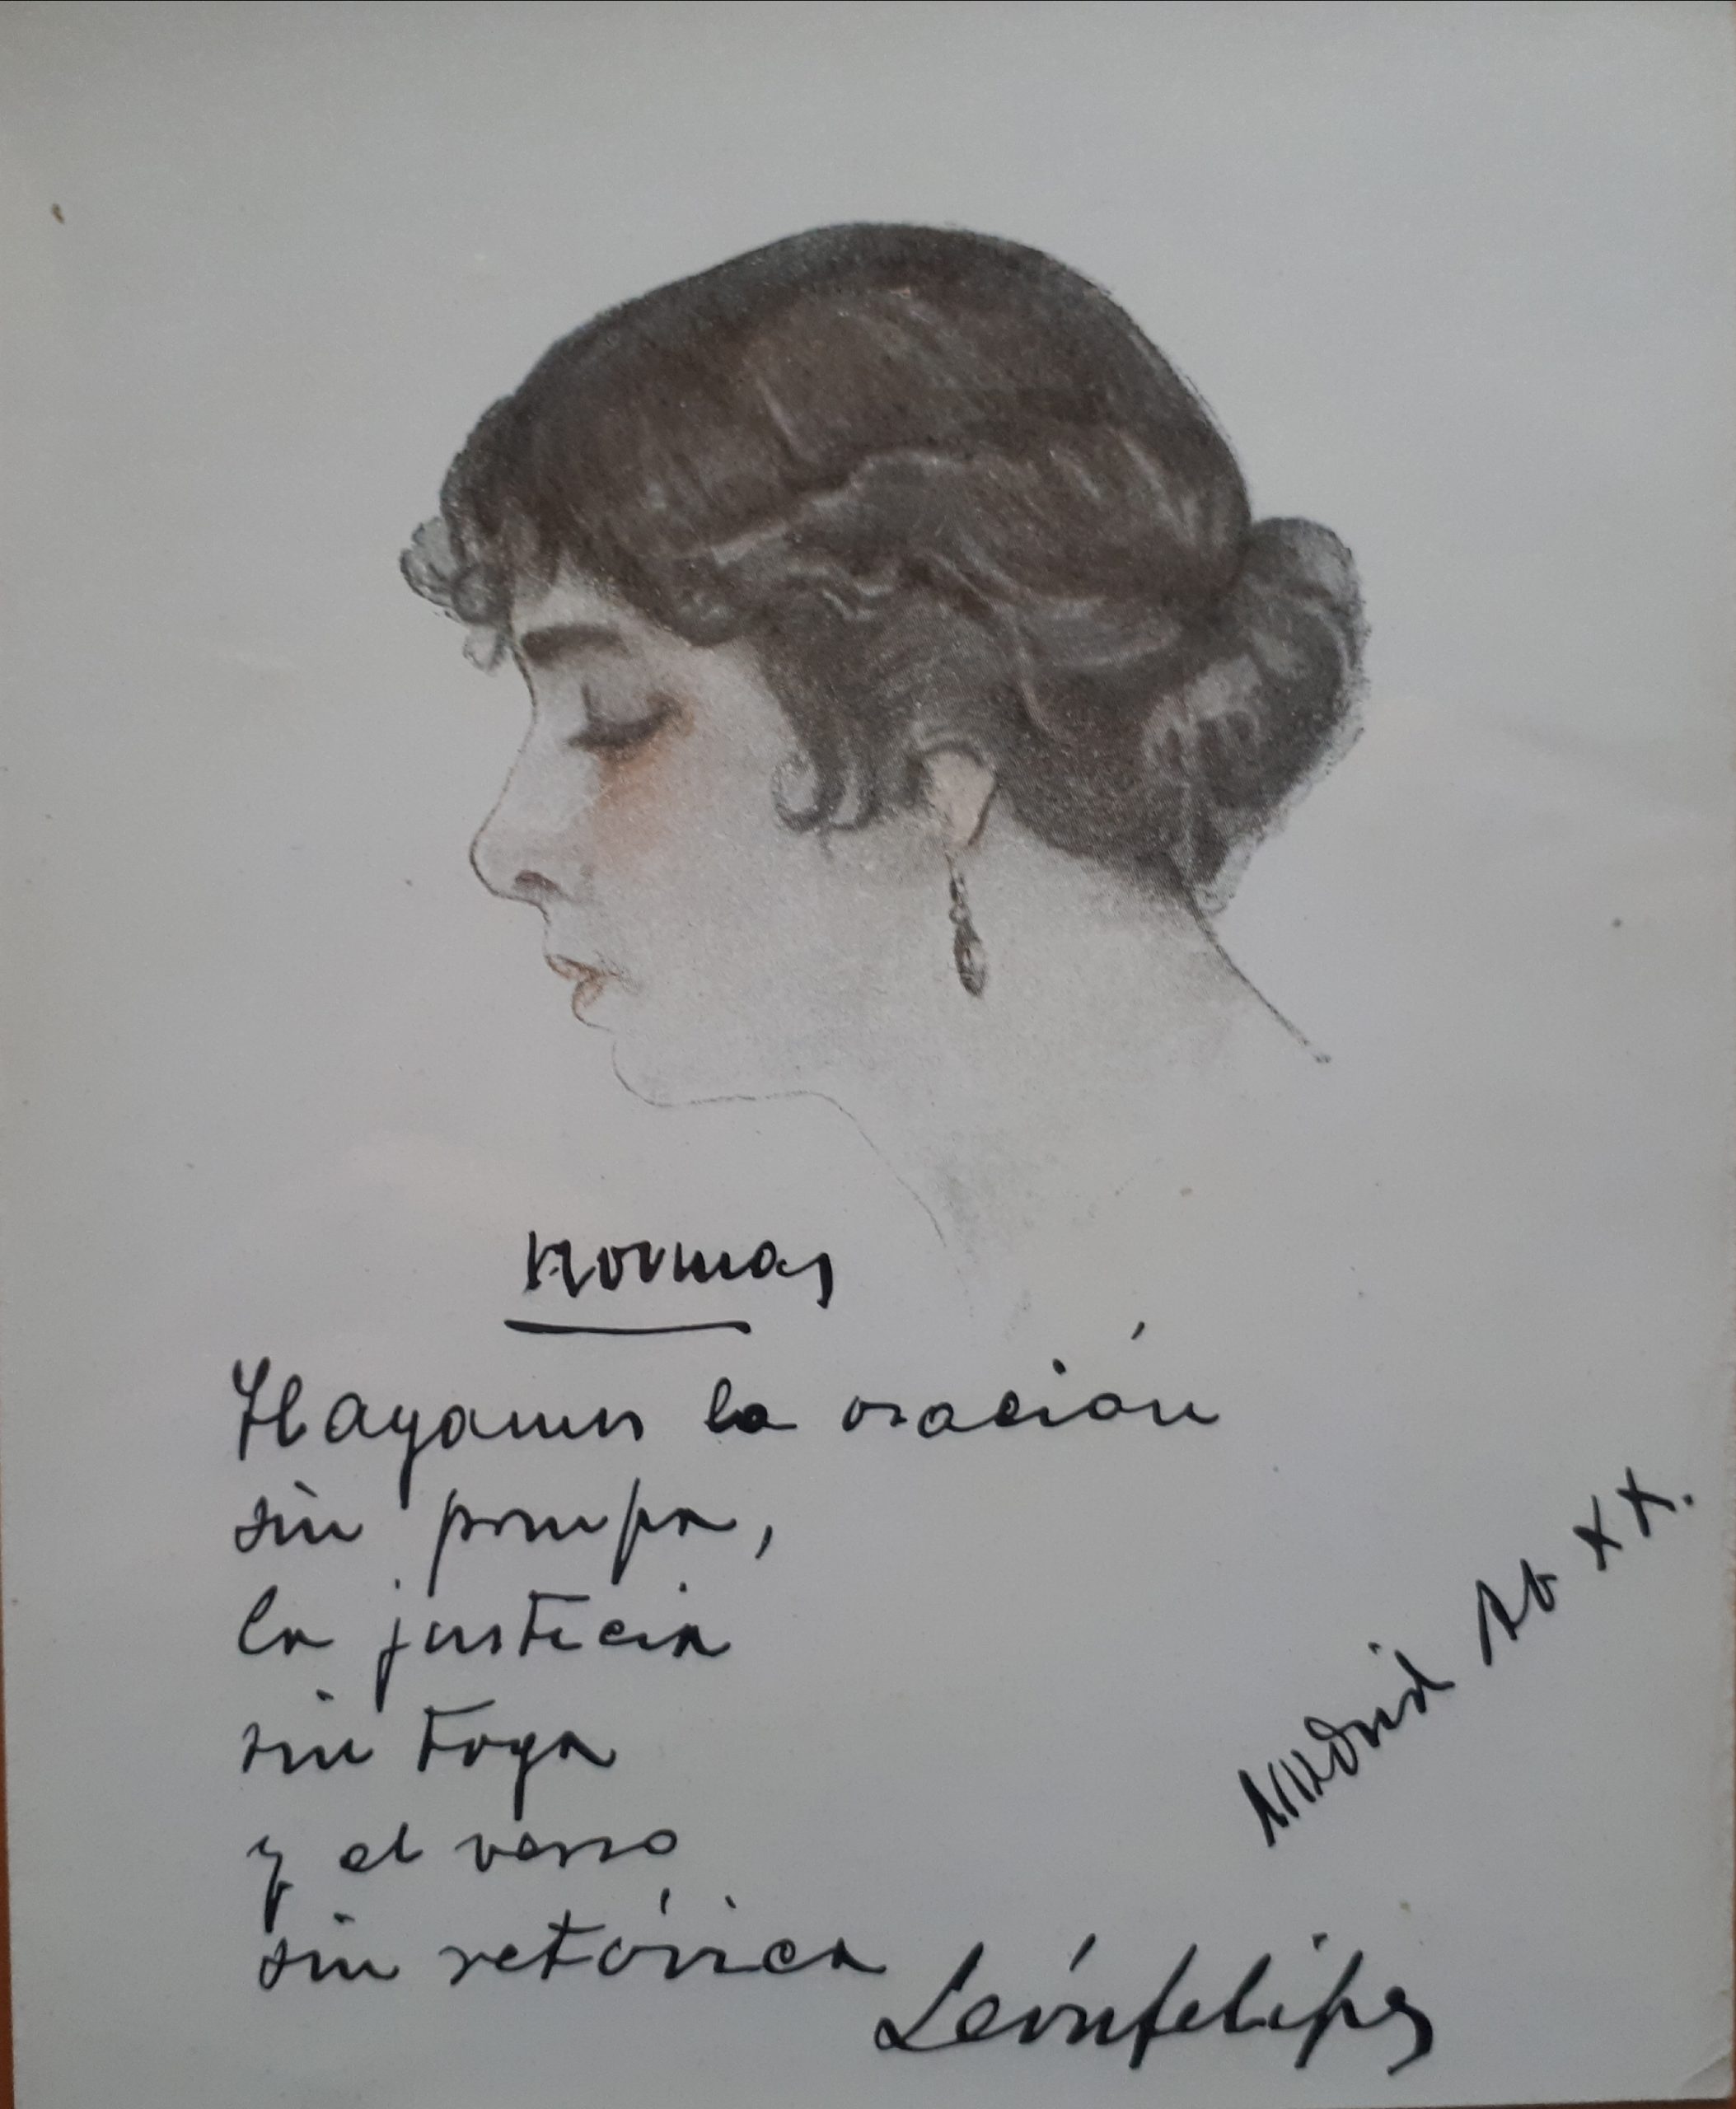 Normas
Hagamos la oración
sin pompa,
la justicia
sin toga
y el verso
sin retórica
Madrid XX.
León felipe